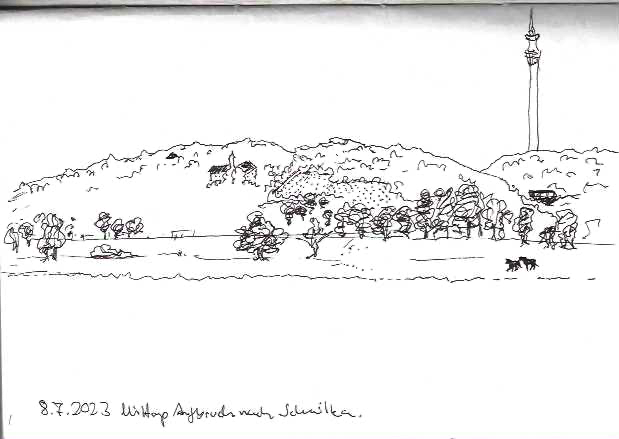 8.7.2023 Mittag Aufbruch nach Schmilka.